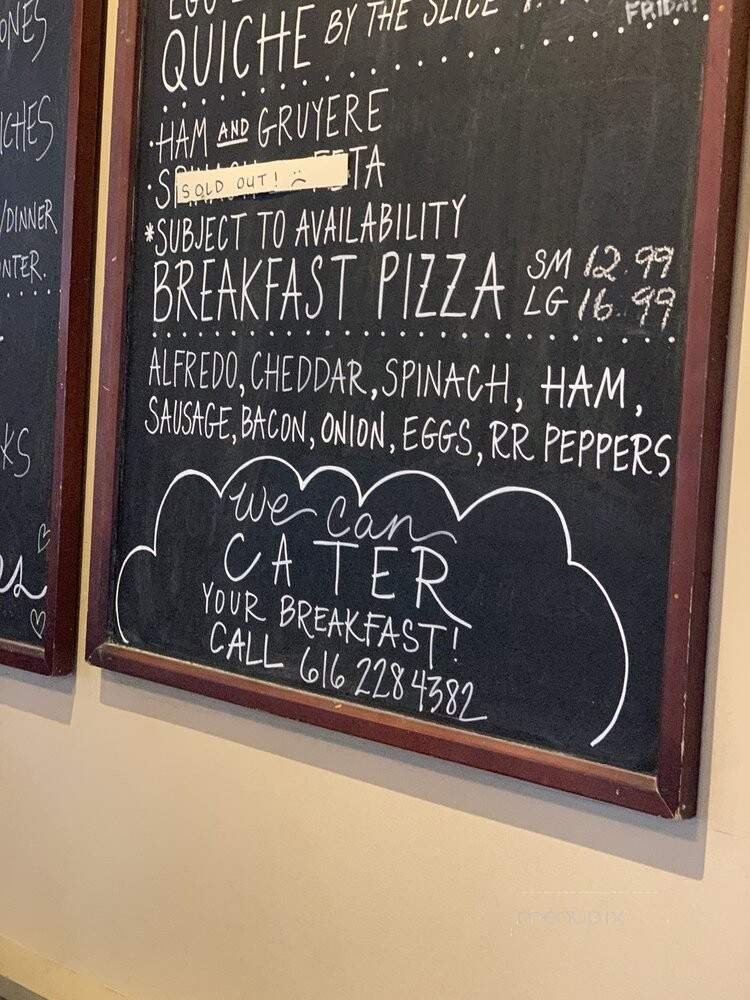 ONES
ICHES
/DINNER
NTER.
KS
QUICHE BY THE SLICE
FRIDAY
·HAM AND GRUYERE
SOLD OUT! :(
*SUBJECT TO AVAILABILITY
BREAKFAST PIZZA SM 12.99
LG 16.99
ALFREDO, CHEDDAR, SPINACH, HAM,
SAUSAGE, BACON, ONION, EGGS, RR PEPPERS
We Can
CATER
YOUR BREAKFAST!
CALL 616 228 4382
menupix